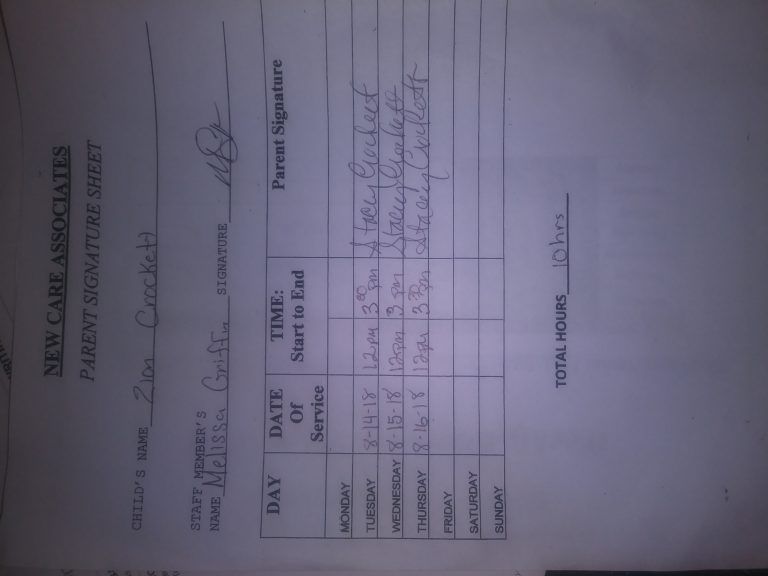 NEW CARE ASSOCIATES
PARENT SIGNATURE SHEET
CHILD'S NAME Zion Crockett
STAFF MEMBER'S
NAME Melissa Griffin SIGNATURE
DAY DATE Of Service TIME: Start to End Parent Signature
MONDAY
TUESDAY 8-14-18 12pm 3 00 pm Stacey Crockett
WEDNESDAY 8-15-18 12pm 3 pm Stacey Crockett
THURSDAY 8-16-18 12pm 3 pm Stacey Crockett
FRIDAY
SATURDAY
SUNDAY
TOTAL HOURS 10hrs